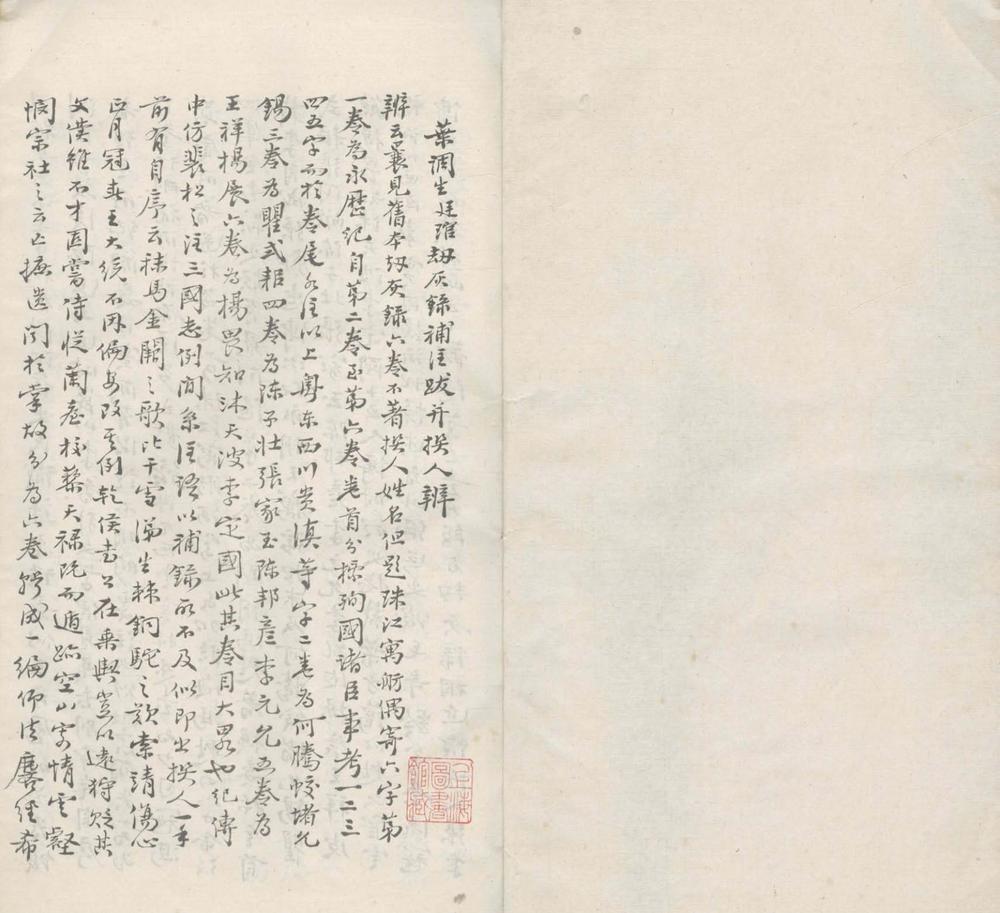 葉調生廷琯劫灰錄補注跋并撰人辨
辨云曩見舊本劫灰錄六卷不著撰人姓名但題珠江寓舫偶寄六字第
一卷為永歷紀自第二卷至第六卷卷首分標殉國諸臣事考一二三
四五字而於卷尾各注以上粵東西川贵滇等字二卷為何騰蛟堵允
錫三卷為瞿式耜四卷為陈子壮張家玉陈邦彦李元允五卷為
王祥楊展六卷為楊畏知沐天波李定國此其卷目大畧也紀傳
中仿裴松之注三國志例閒系注語以補錄所不及似即出撰人一手
前有自序云秣馬金闕之歌比于雪涕坐棘銅駝之歎索靖傷心
正月冠春王大统不因偏安改其例乾侯書公在乘輿豈以遠狩贬其
文僕雖不才固嘗侍從蘭臺校藜天禄既而遁跡空山寄情雲壑
悯宗社之云亡摭遗闻於掌故分為六卷彙成一編仰法麐经希
上海圖書館藏